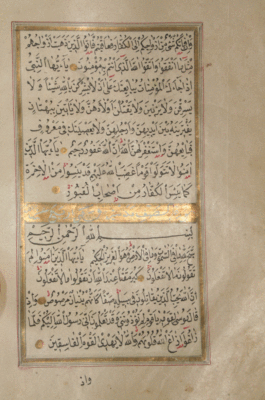 وان فاتكم شيء من ازواجكم الى الكفار فعاقبتم فاتوا الذين ذهبت ازواجهم
مثل ما انفقوا واتقوا الله الذي انتم به مؤمنون يا ايها النبي
اذا جاءك المؤمنات يبايعنك على ان لا يشركن بالله شيئا ولا
يسرقن ولا يزنين ولا يقتلن اولادهن ولا ياتين ببهتان
يفترينه بين ايديهن وارجلهن ولا يعصينك في معروف
فبايعهن واستغفر لهن الله ان الله غفور رحيم يا ايها الذين
امنوا لا تتولوا قوما غضب الله عليهم قد يئسوا من الاخرة
كما يئس الكفار من اصحاب القبور
بسم الله الرحمن الرحيم
سبح لله ما في السموات وما في الارض وهو العزيز الحكيم يا ايها الذين امنوا لم
تقولون ما لا تفعلون كبر مقتا عند الله ان تقولوا ما لا تفعلون
ان الله يحب الذين يقاتلون في سبيله صفا كانهم بنيان مرصوص واذ
قال موسى لقومه يا قوم لم تؤذونني وقد تعلمون اني رسول الله اليكم فلما
زاغوا ازاغ الله قلوبهم والله لا يهدي القوم الفاسقين
واذ